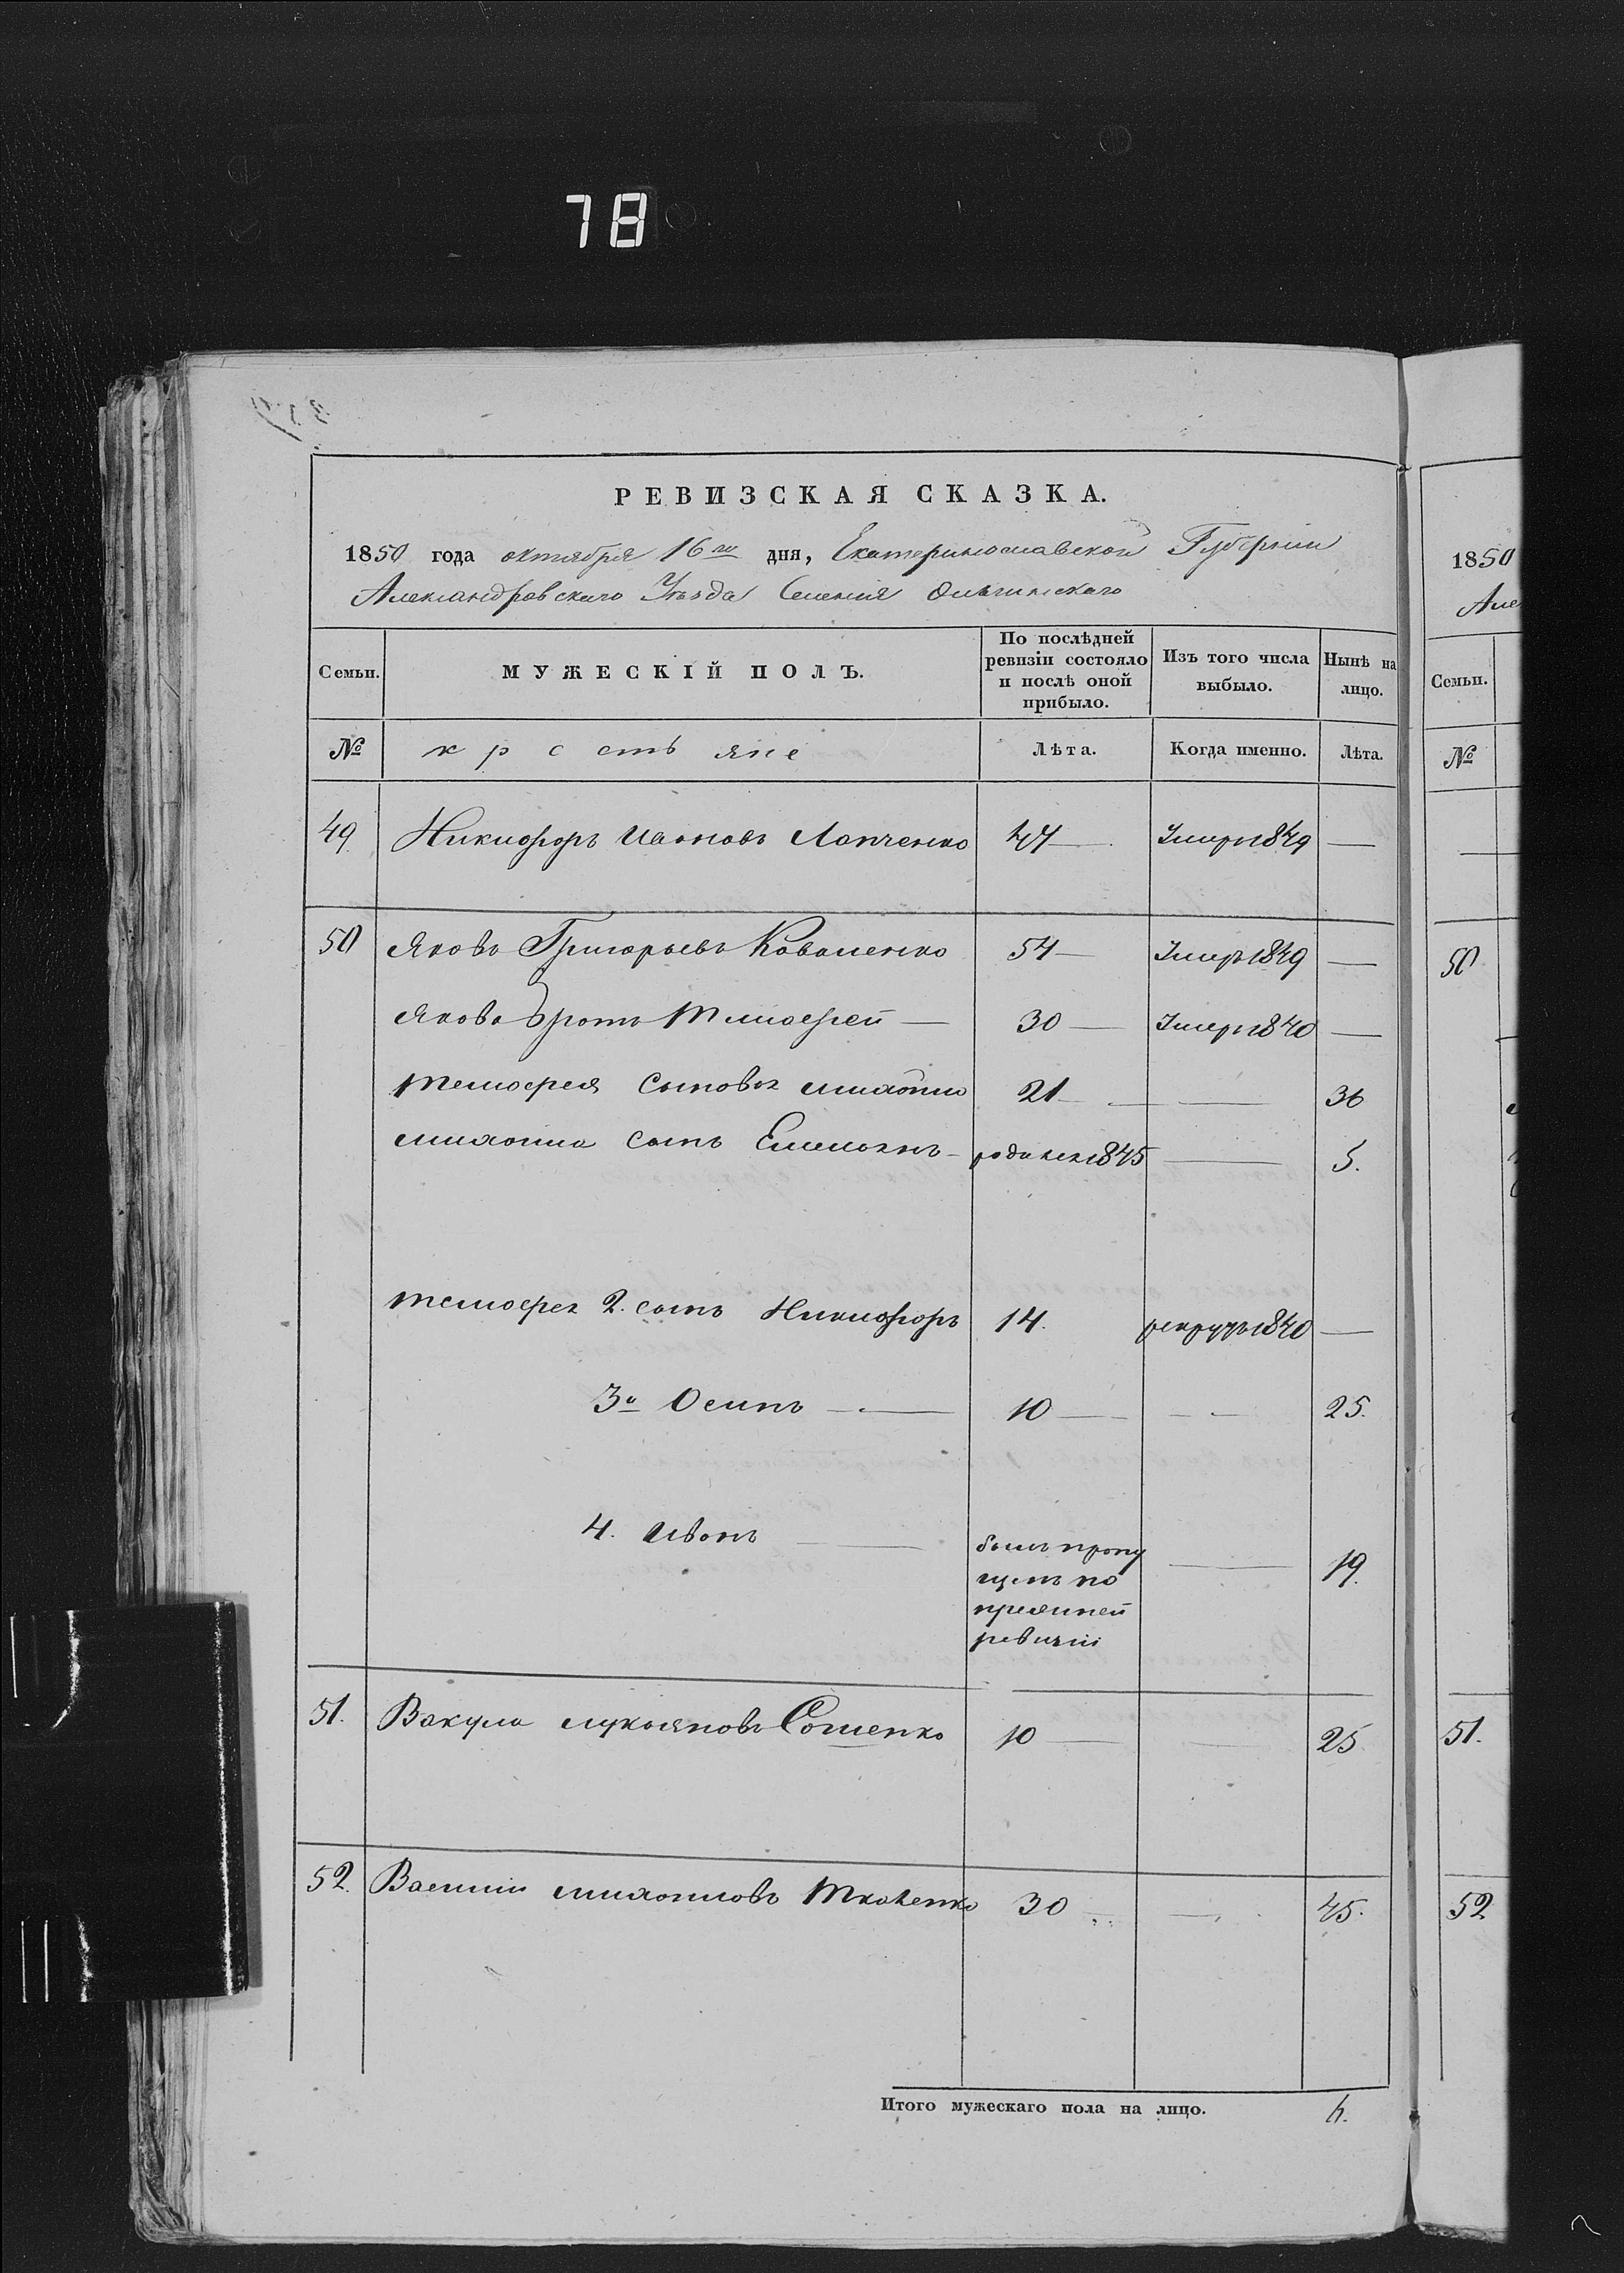 78
РЕВИЗСКАЯ СКАЗКА.
1850 года октября 16го дня, Екатеринославской Губернии
Александровскаго Уезда Селения Ольгинскаго
Семьи. МУЖЕСКІЙ ПОЛЪ. По послѣдней ревизіи состояло и послѣ оной прибыло. Изъ того числа выбыло. Нынѣ на лицо.
№ крестьяне Лѣта. Когда именно. Лѣта.
49 Никифоръ Лапченко 47 — Умеръ 1849 —
50 Яковъ Григорьевъ Коваленко 54 — Умеръ 1849 —
Якова братъ Тимофей — 30 — Умеръ 1840 —
Тимофея сыновья 21 — — 36
сынъ Емельянъ — родился 1845 — 5.
Тимофея 2. сынъ Никифоръ 14. рекрут 1840 —
3й Осипъ — 10 — — 25.
4. Иванъ — былъ пропу
щенъ по
прежней
ревизіи — 19.
51. Вакула Лукьяновъ Сошенко 10 — — 25
52. Василий Ткаченко 30 — — 45.
Итого мужескаго пола на лицо. 6.
1850
Але
Семьи.
№
50
51.
52